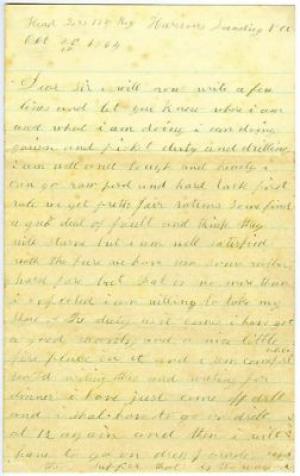 Head Qrs 184 Reg Harrisons Landing Va
Oct 28 1864
Dear Sir i will now write a few
lines and let you know where i am
and what i am doing i am doing
garison and picket duty and drilling
i am well and tough and hearty i
can go raw pork and hard tack first
rate we get pretty fair rations some find
a good deal of fault and think they
will starve but i am well satisfied
with the fare we have seen some rather
hard fare but that is no more than
i expected i am willing to take my
share of the duty as it comes i have got
a good shanty and a nice little
fire place in it and i am
writing this and waiting for
dinner i have just come off drill
and i shall have to go on drill
at 12 again and then i will
have to go on dress parade